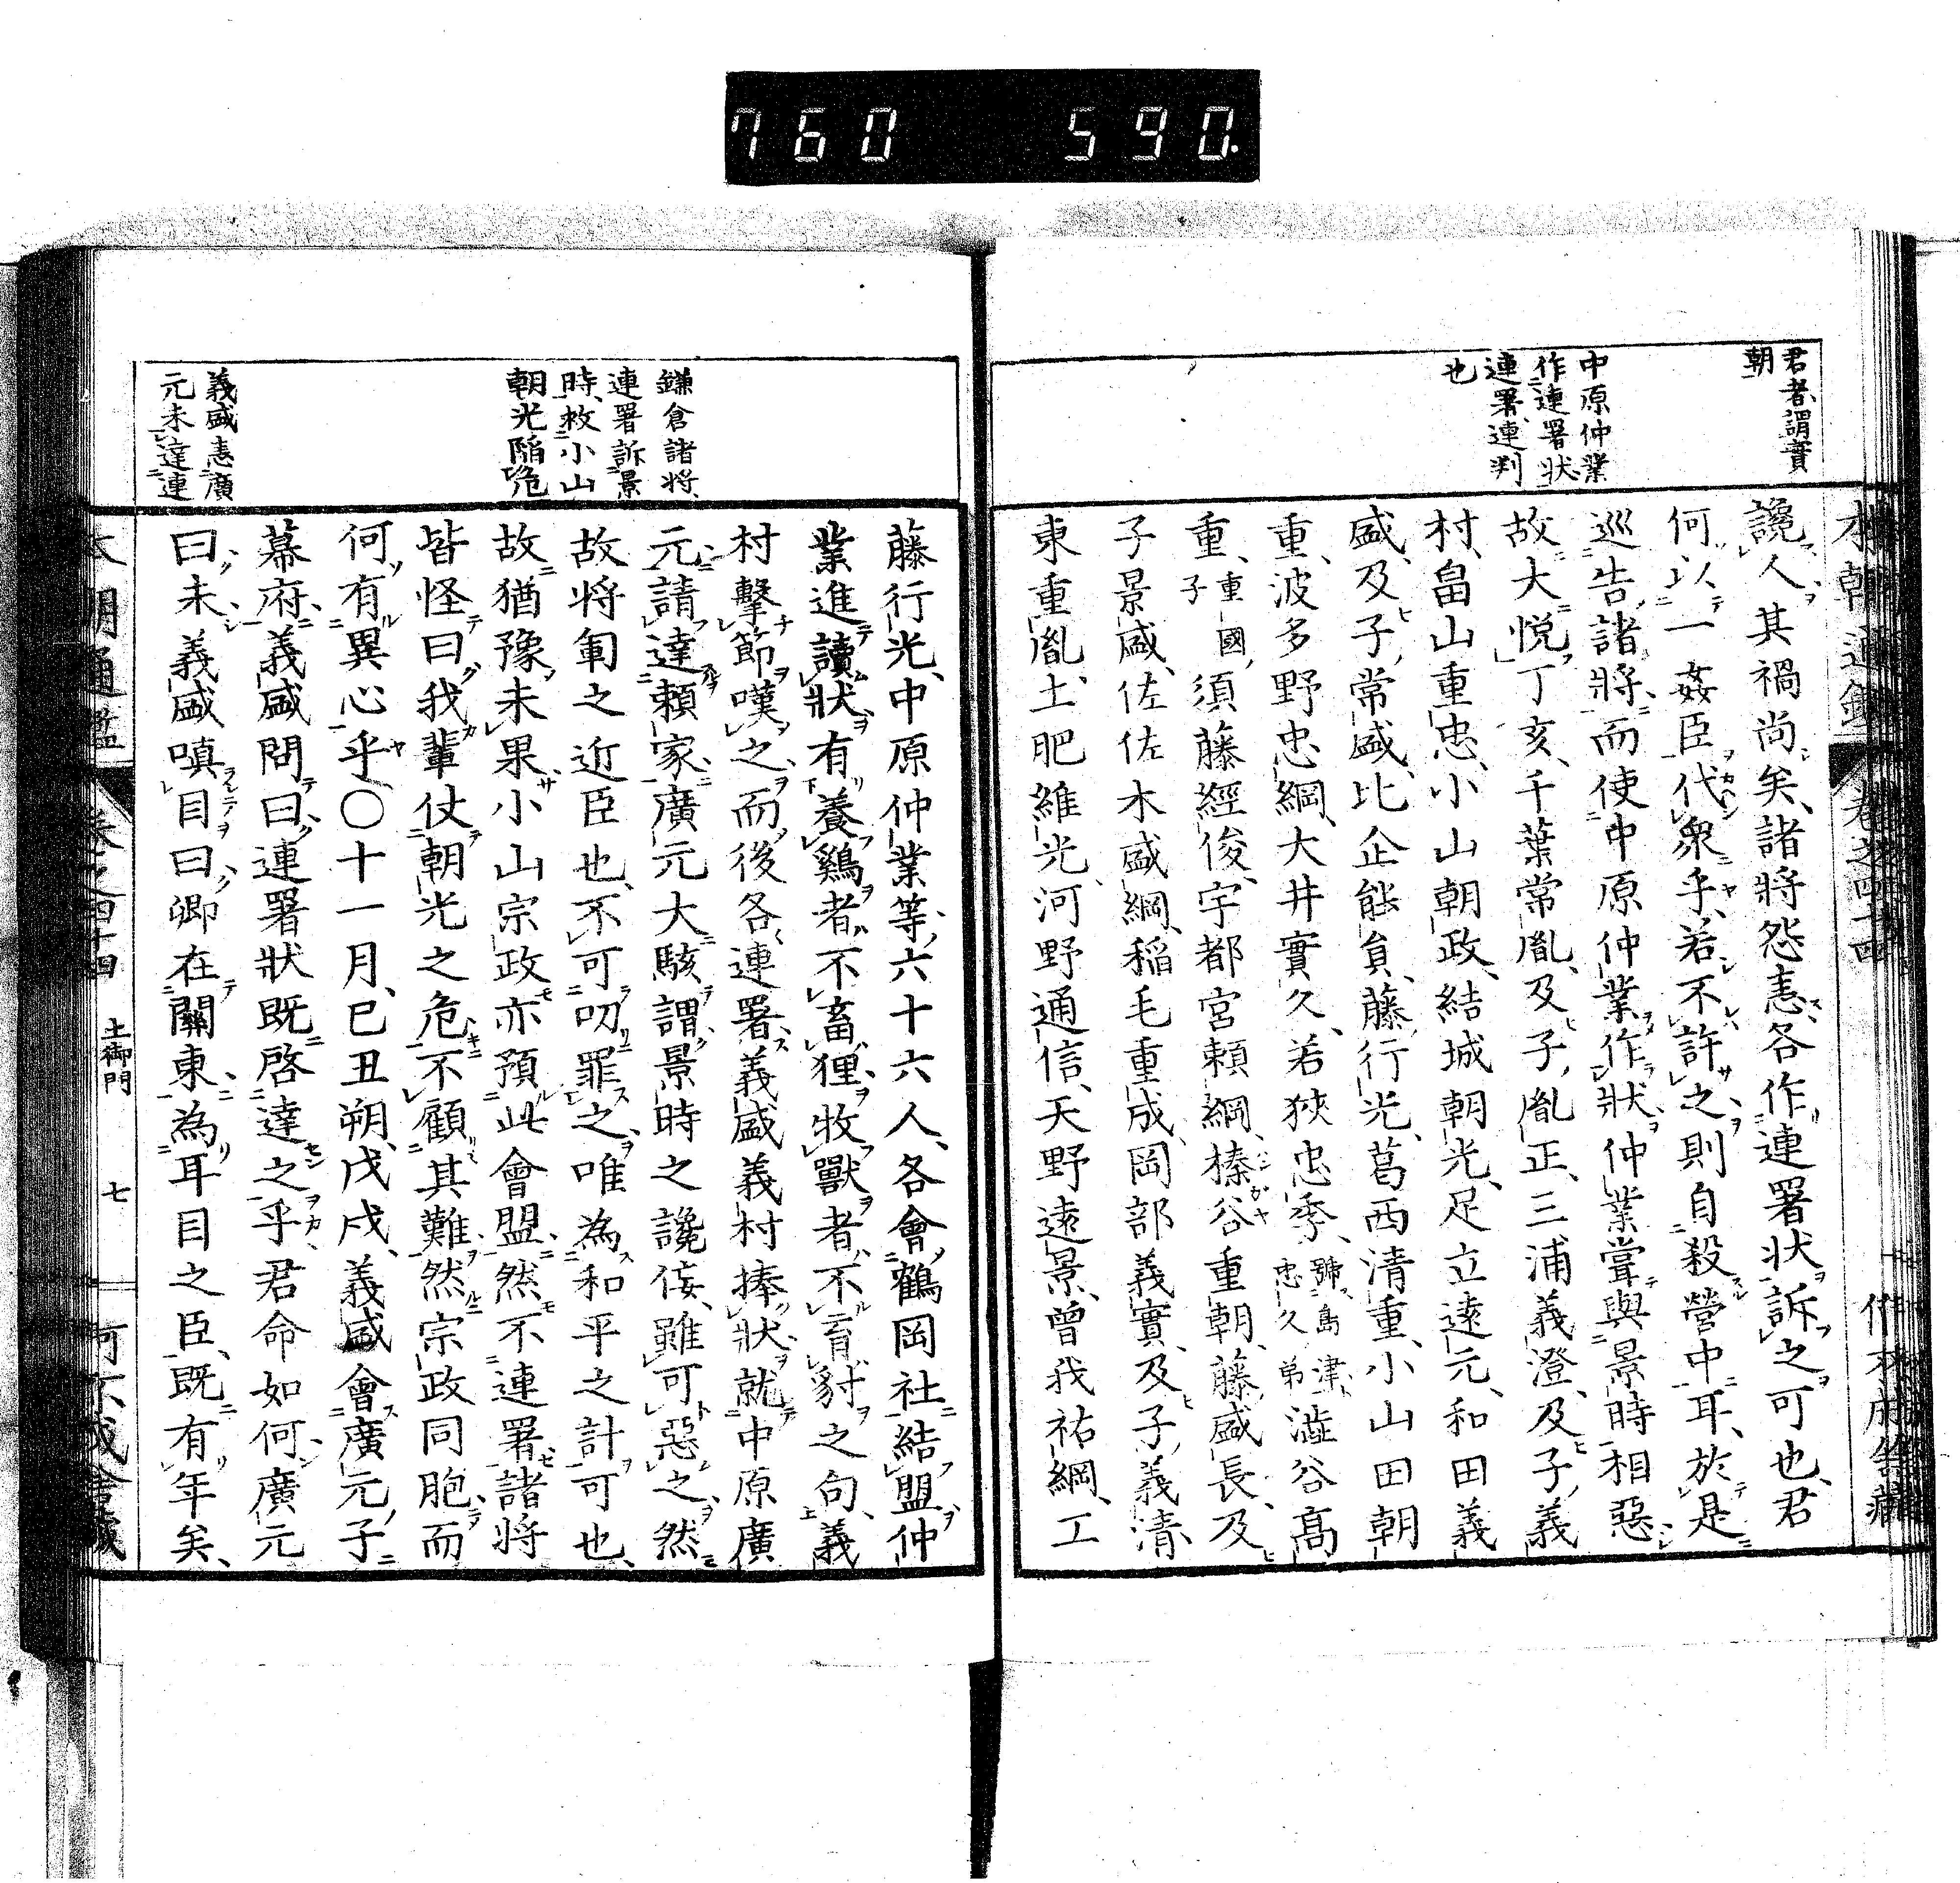 760 590.
君者謂實
朝
中原仲業
作連署状
連署連判
也
讒人其禍尚矣諸將怨恚各作連署状訴之可也君
何以一姦臣代衆乎若不許之則自殺營中耳於是
巡告諸將而使中原仲業作狀仲業甞與景時相惡
故大悦丁亥千葉常胤及子胤正三浦義澄及子義
村畠山重忠小山朝政結城朝光足立遠元和田義
盛及子常盛比企能員藤行光葛西清重小山田朝
重波多野忠綱大井實久若狹忠季號島津忠久弟澁谷髙
重重國子須藤經俊宇都宮頼綱榛谷重朝藤盛長及
子景盛佐佐木盛綱稲毛重成岡部義實及子義清
東重胤土肥維光河野通信天野遠景曾我祐綱工
鎌倉諸將
連署訴景
時救小山
朝光陥危
義盛恚廣
元未達連
藤行光中原仲業等六十六人各會鶴岡社結盟仲
業進讀狀有養鷄者不畜狸牧獸者不育豺之句義
村擊節嘆之而後各連署義盛義村捧狀就中原廣
元請達頼家廣元大駭謂景時之讒侫雖可惡之然
故将軍之近臣也不可叨罪之唯為和平之計可也
故猶豫未果小山宗政亦預此會盟然不連署諸將
皆怪曰我輩仗朝光之危不顧其難然宗政同胞而
何有異心乎〇十一月巳丑朔戊戌義盛會廣元于
幕府義盛問曰連署狀既啓達之乎君命如何廣元
曰未義盛嗔目曰卿在關東為耳目之臣既有年矣
本朝通鑑 卷之四十四 土御門 七